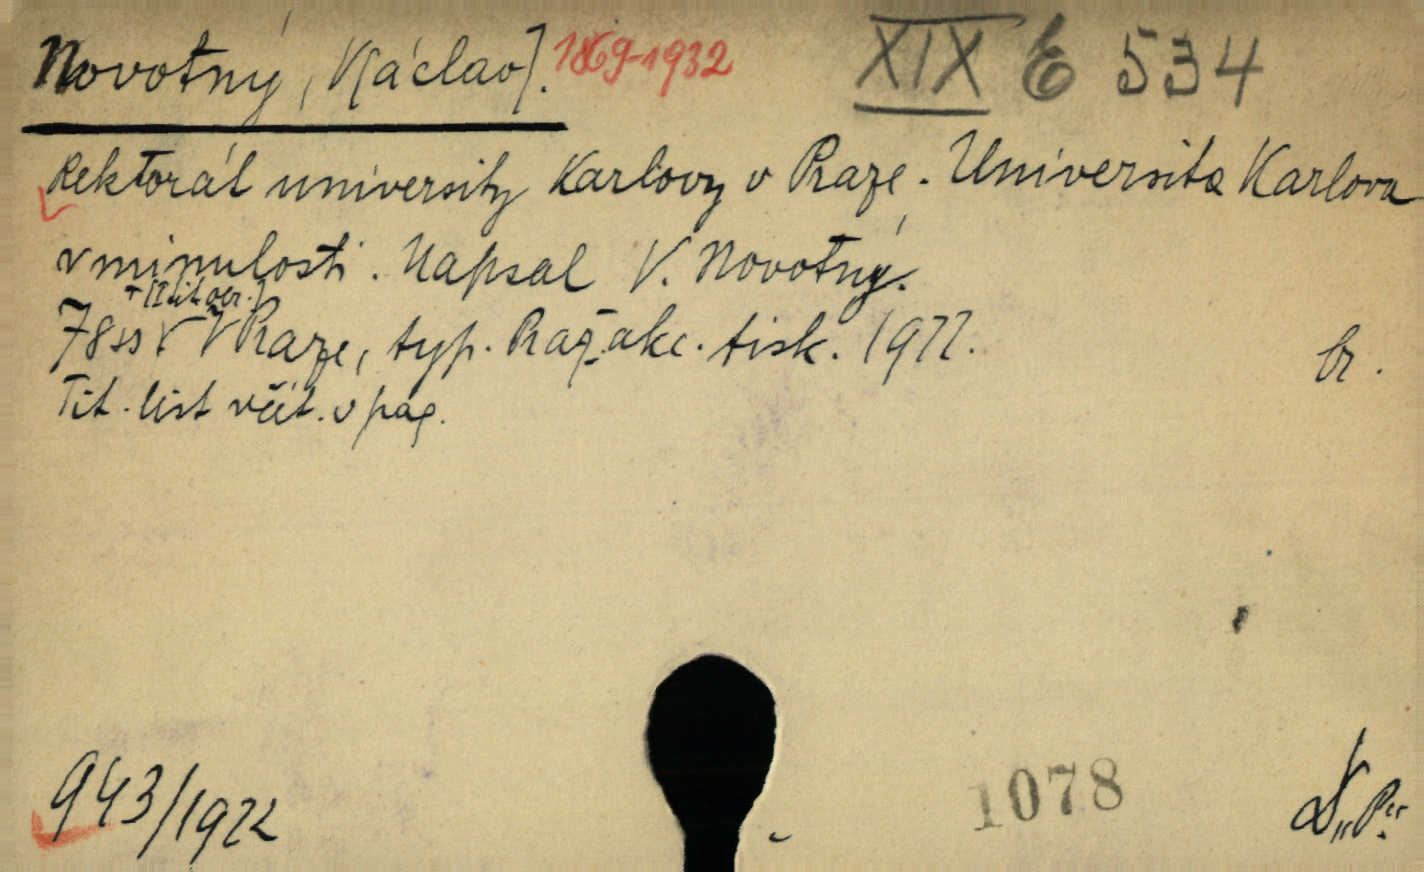 Novotný, V[áclav]. 1869-1932 XIX E 534
Rektorát university Karlovy v Praze. Universita Karlova
v minulosti. Napsal V. Novotný.
+ [2 lit. obr.]
78 ss V Praze, typ. Praž. akc. tisk. 1922. br.
Tit. list včít. v pag.
943/1922 1078 "P."